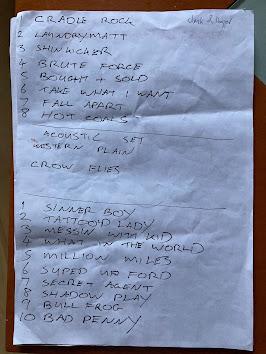 CRADLE ROCK
2 LAUNDRYMATT
3 SHINKICKER
4 BRUTE FORCE
5 BOUGHT + SOLD
6 TAKE WHAT I WANT
7 FALL APART
8 HOT COALS
ACOUSTIC SET
WESTERN PLAIN
CROW FLIES
1 SINNER BOY
2 TATTOO'D LADY
3 MESSIN WITH KID
4 WHAT IN THE WORLD
5 MILLION MILES
6 SUPED UP FORD
7 SECRET AGENT
8 SHADOW PLAY
9 BULLFROG
10 BAD PENNY